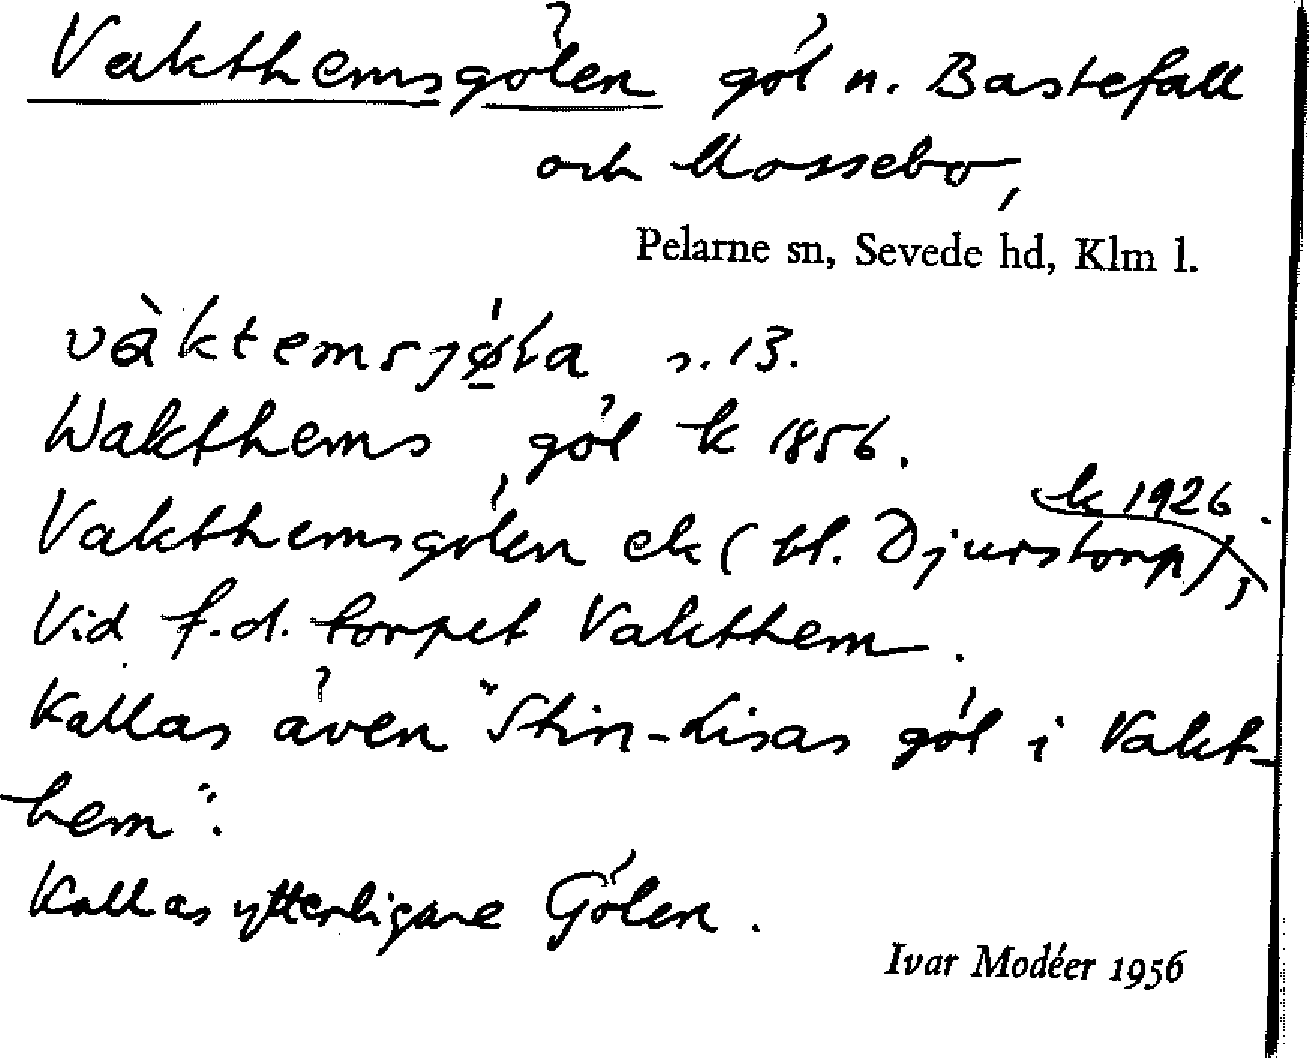 Vakthemsgölen göl n. Bastefall
och Mossebo,
Pelarne sn, Sevede hd, Klm l.
s. 13.
Wakthems göl k 1856.
k 1926.
Vakthemsgölen ek (bl. Djurstorp),
Vid f.d. torpet Vakthem.
Kallas även "Stin-Lisas göl i Vakt-
hem".
Kallas ytterligare Gölen.
Ivar Modéer 1956